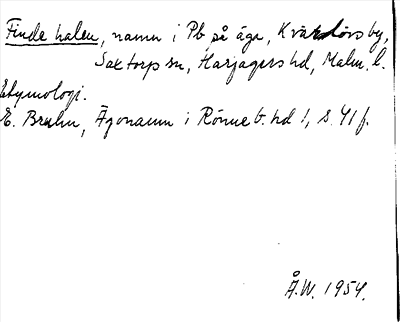 Finde halen, namn i Pb på äga, Kvärlövs by,
Saxtorps sn, Harjagers hd, Malm. l.
Etymologi.
E. Bruhn, Ägonamn i Rönneb. hd 1, s. 41 f.
Å.W. 1954.